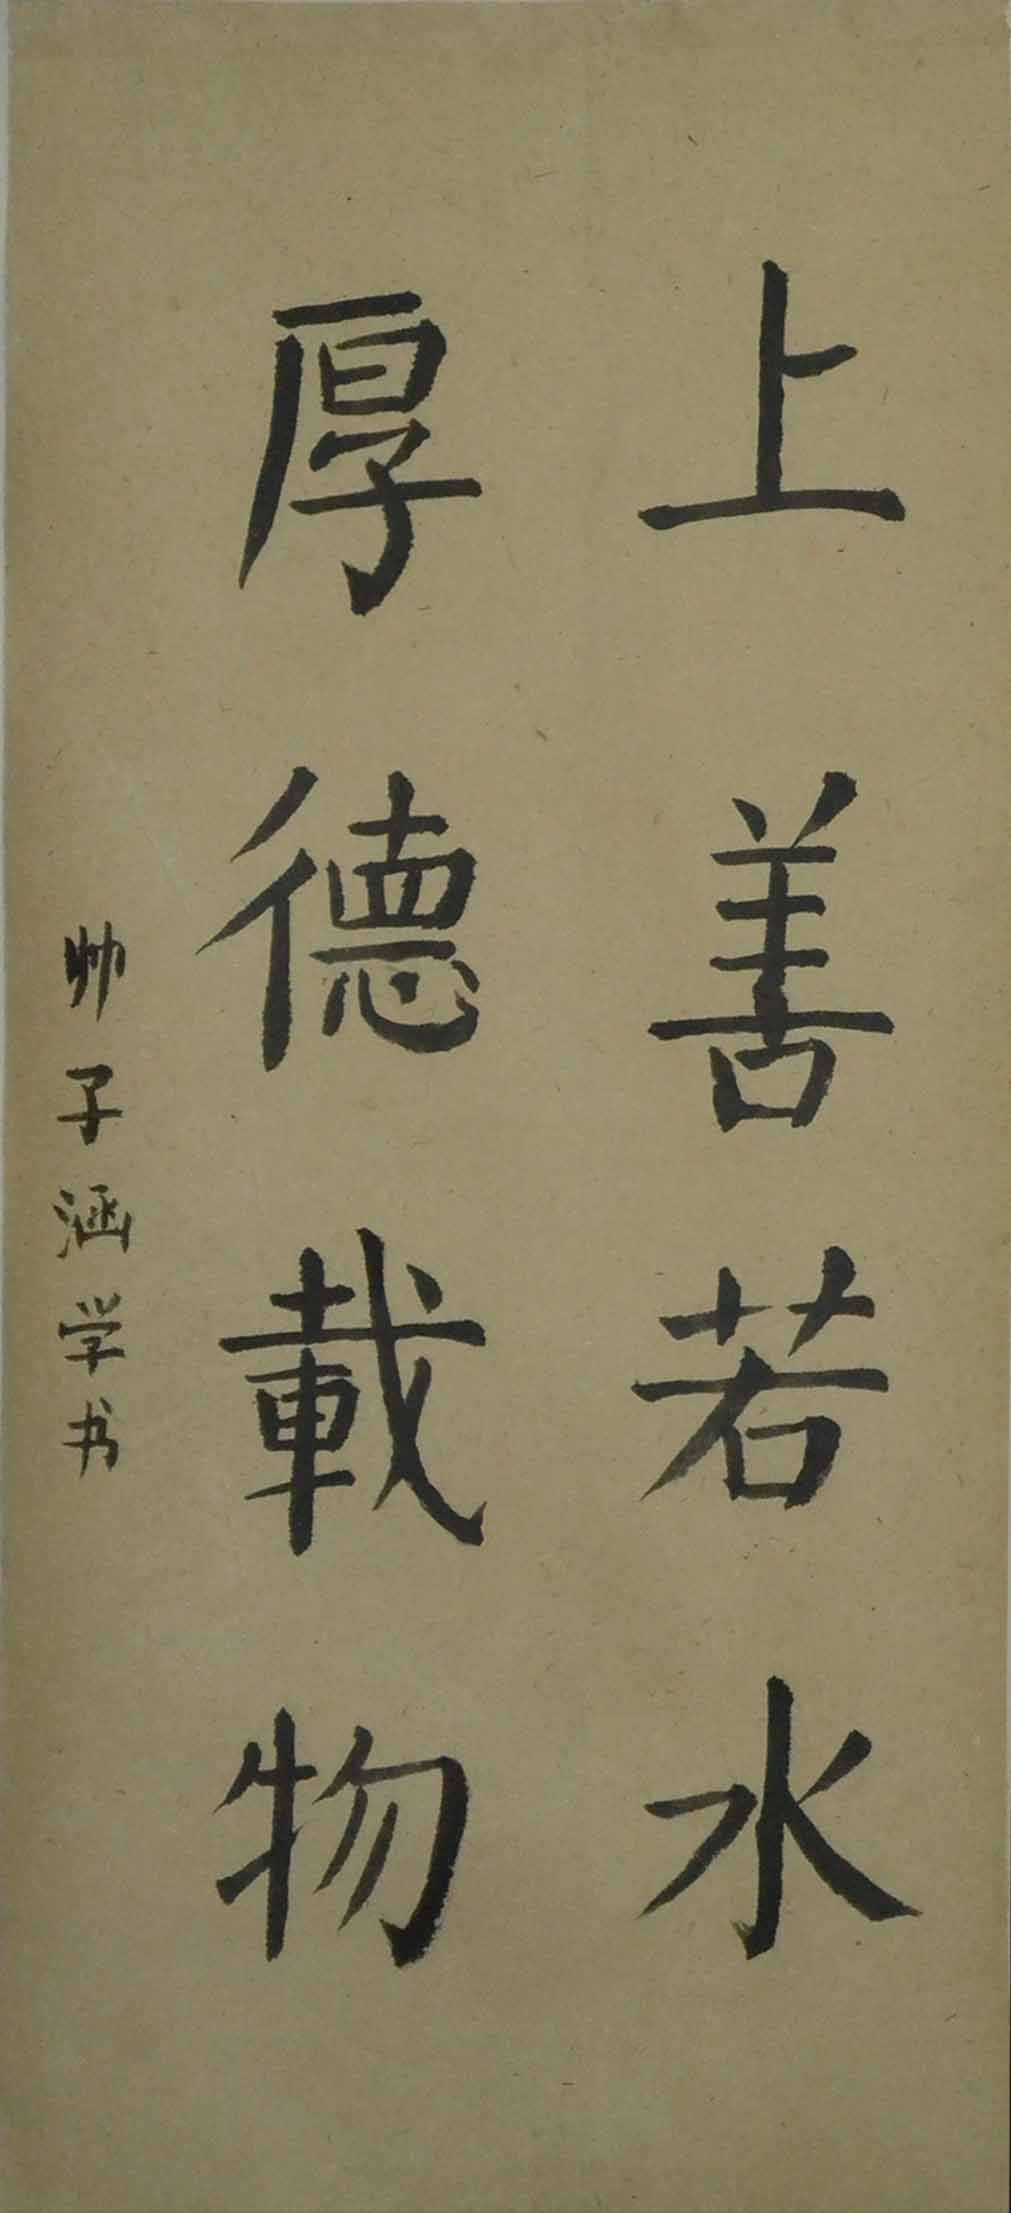 上善若水
厚德載物
帅子涵学书